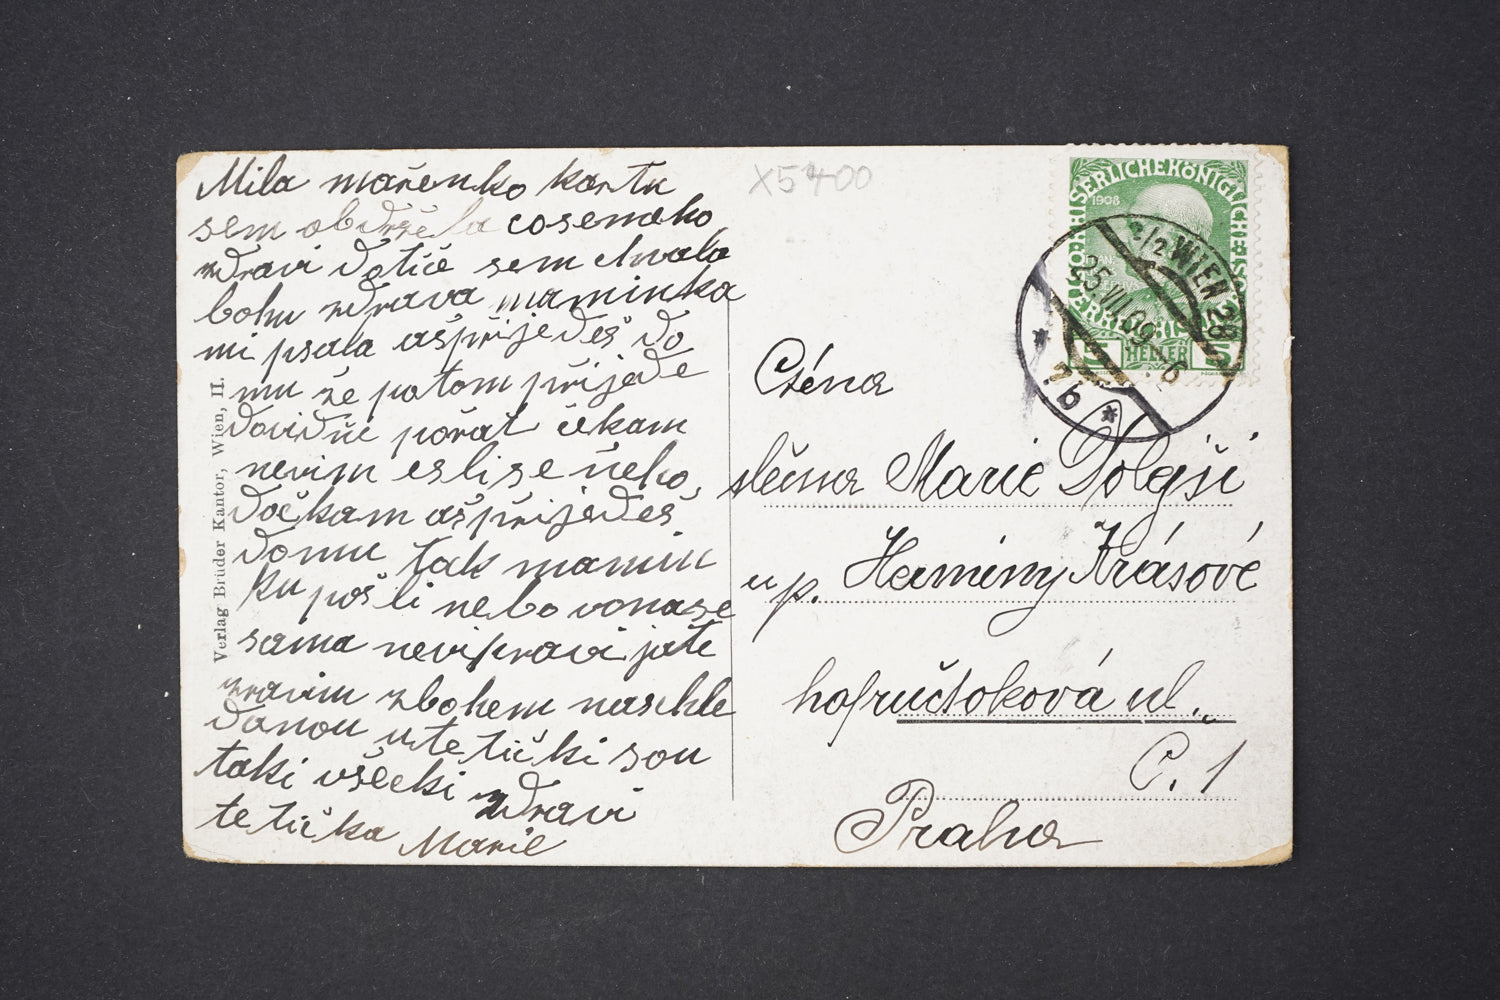 Mila mařenko kartu
sem obdržela cosemeho
zdravi dotiče sem chvala
bohu zdrava maminka
mi psala ašpřijedeš do
mu že potom přijede
dovidňe pořat čekam
nevim eslise ňeko
dočkam ašpřijedeš
domu tak mamin
ku pošli nebo vonase
sama nevipravi jáťe
zravim zbohem naschle
danou utetički sou
taki všecki zdravi
tetička Marie
Verlag Brüder Kantor, Wien, II.
X5400
SERLICHEKÖNIGLICHE
1908
5 HELLER 5
2/2 WIEN 28
25.VII.09
* 7b *
Cténa
slečna Marie Dolejší
u p. Herminy Krásové
ul.
C. 1
Praha